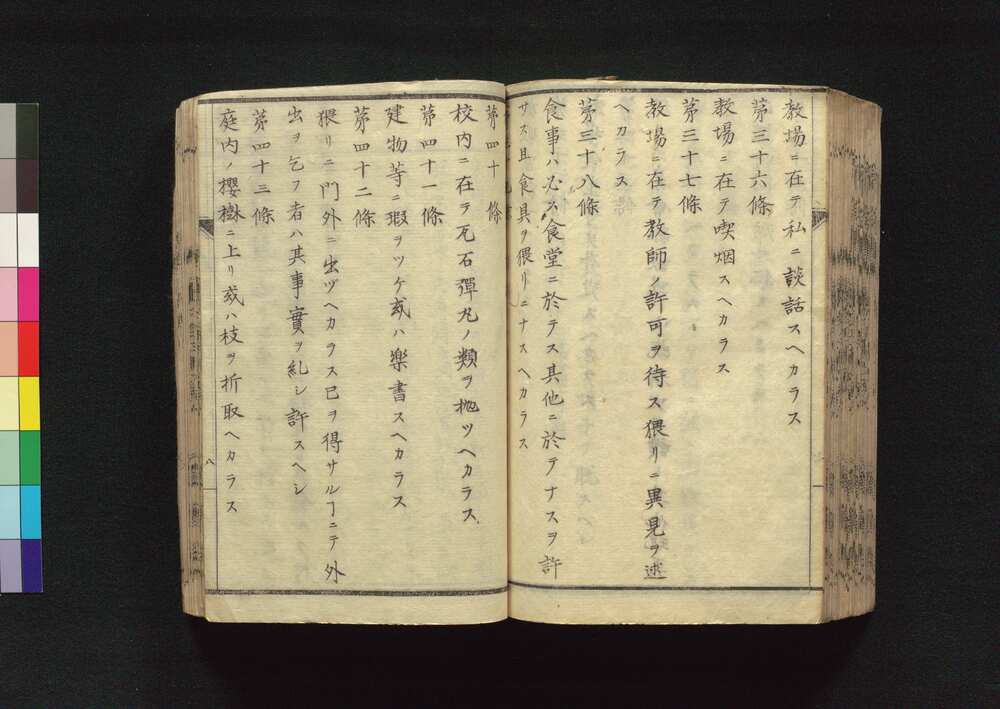 教場ニ在テ私ニ談話スヘカラス
第三十六條
教場ニ在テ喫烟スヘカラス
第三十七條
教場ニ在テ教師ノ許可ヲ待ス猥リニ異見ヲ述
ヘカラス
第三十八條
食事ハ必ス食堂ニ於テス其他ニ於テナスヲ許
サス且食具ヲ猥リニナスヘカラス
第四十條
校内ニ在テ瓦石彈丸ノ類ヲ抛ツヘカラス
第四十一條
建物等ニ瑕ヲツケ或ハ樂書スヘカラス
第四十二條
猥リニ門外ニ出ツヘカラス已ヲ得サルヿニテ外
出ヲ乞フ者ハ其事實ヲ糺シ許スヘシ
第四十三條
庭内ノ櫻樹ニ上リ或ハ枝ヲ折取ヘカラス
八